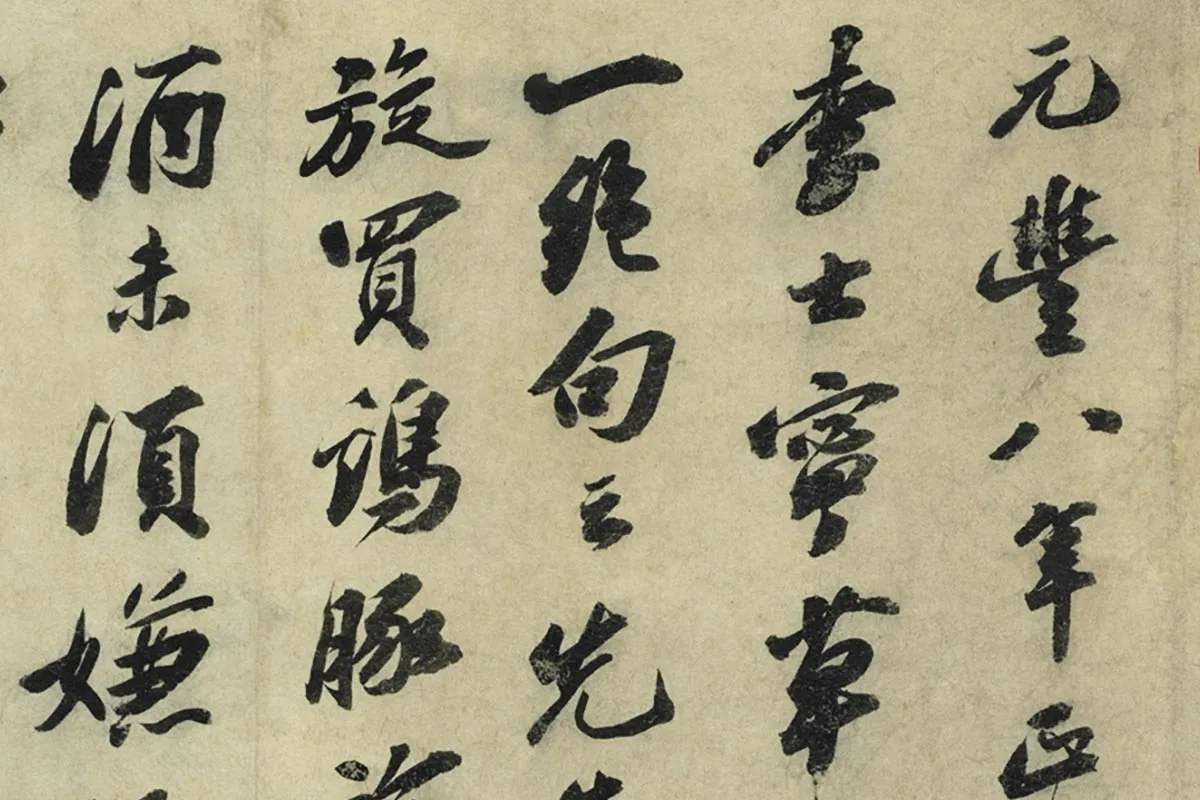 元豐八年正
李士寧草
一絕句云先
旋買鷄豚
酒未須嫌